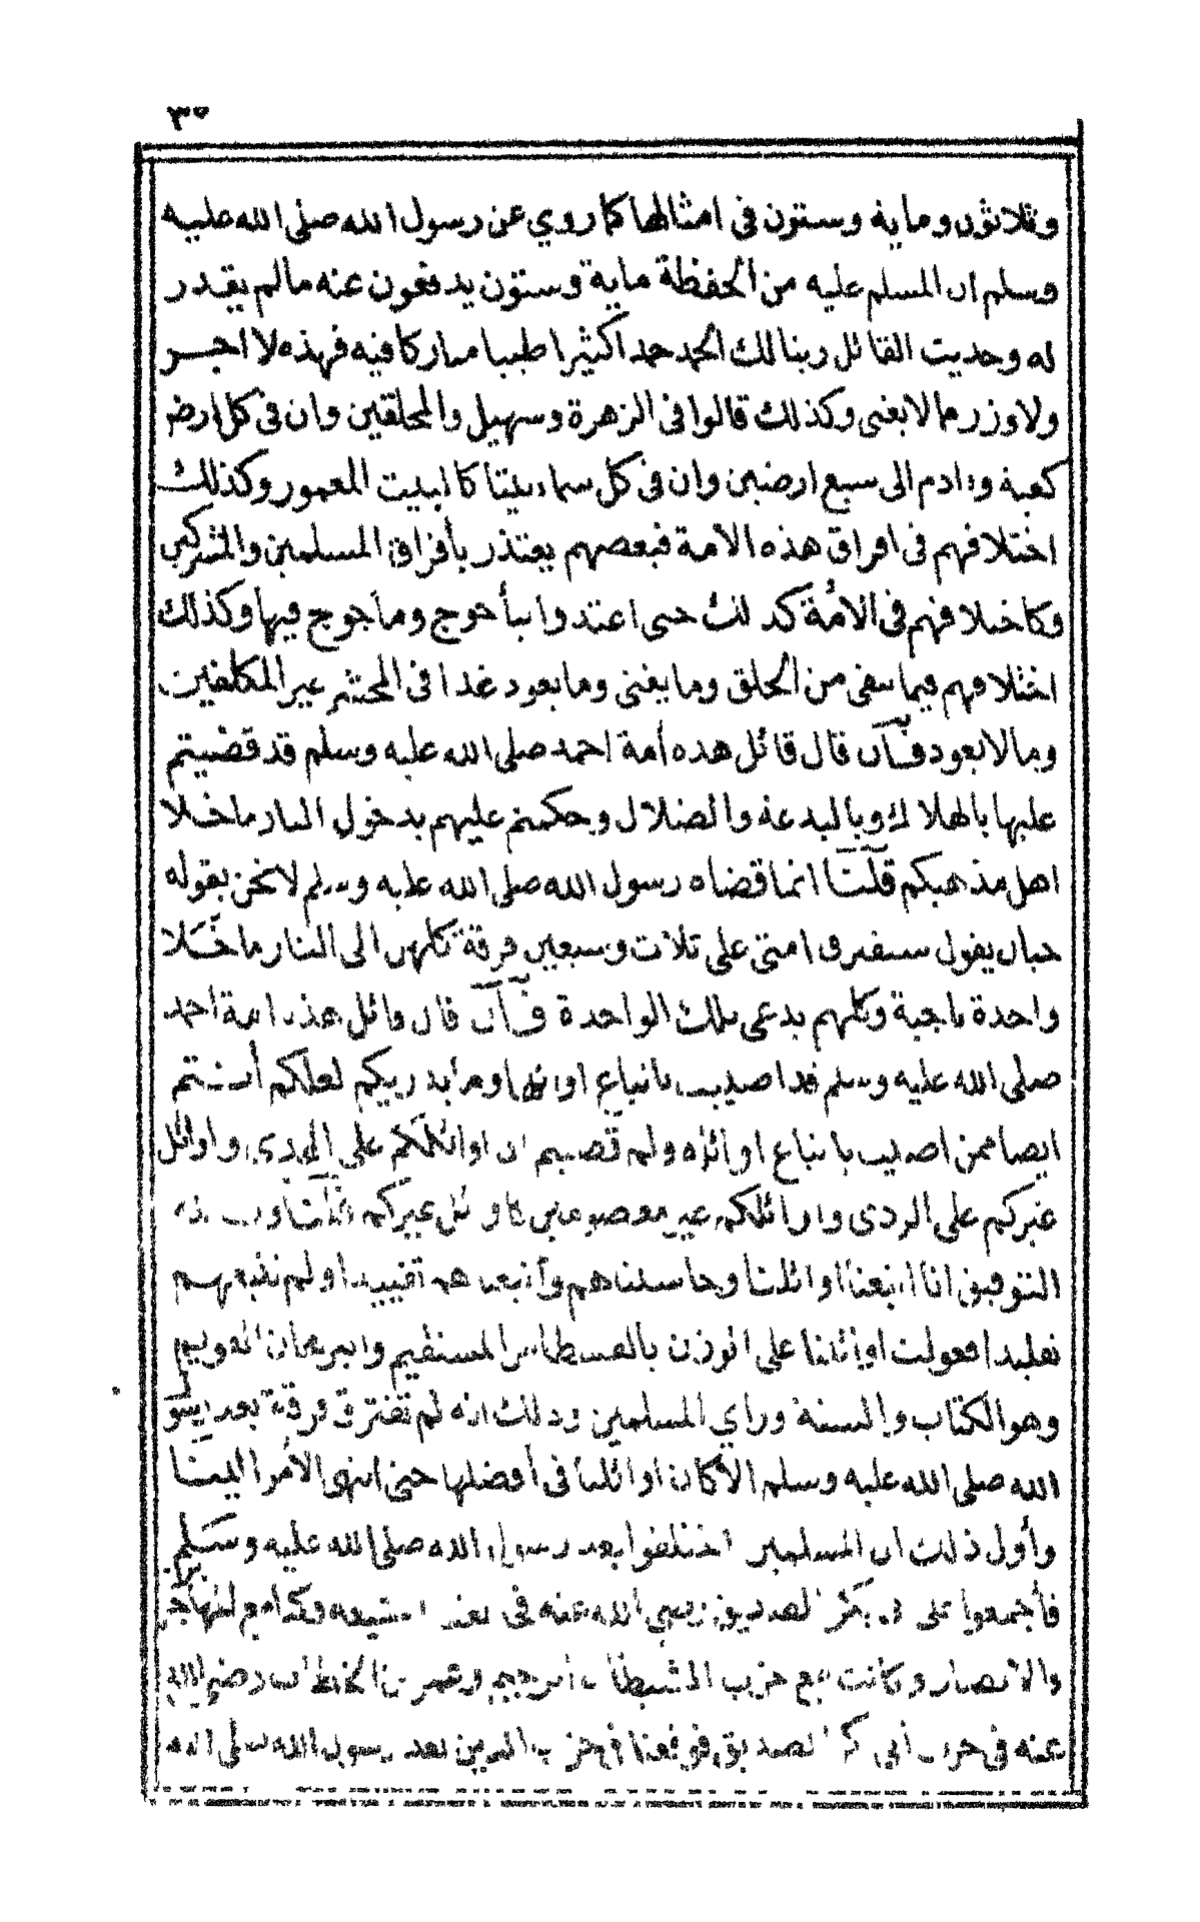 ٣٥
وثلاثون وماية وستون في امثالها كما روي عن رسول الله صلى الله عليه
وسلم ان المسلم عليه من الحفظة ماية وستون يدفعون عنه مالم يقدر
له وحديث القائل ربنا لك الحمد حمد اكثيرا طيبا مباركا فيه فهذه لا اجر
ولا وزر مما لا يغنى وكذلك قالوا في الزهرة وسهيل والمحلقين وان في كل ارض
كعبة وءادم الى سبع ارضين وان في كل سماء بيتا كالبيت المعمور وكذلك
اختلافهم في افراق هذه الامة فبعضهم يعتذر بأفراق المسلمين والمشركين
وكاختلافهم في الأمة كذلك حتى اعتدوا بيأجوج ومأجوج فيها وكذلك
اختلافهم فيما يبقى من الخلق وما يفنى وما يعود غدا في المحشر غير المكلفين
وما لا يعود فان قال قائل هذه أمة احمد صلى الله عليه وسلم قد قضيتم
عليها بالهلاك وبالبدعة والضلال وحكمتم عليهم بدخول النار ماخلا
اهل مذهبكم قلنا انما قضاه رسول الله صلى الله عليه وسلم لا نحن بقوله
حيان يقول ستفترق امتي على ثلاث وسبعين فرقة كلهن الى النار ماخلا
واحدة ناجية وكلهم يدعى تلك الواحدة فان قال قائل هذه امة احمد
صلى الله عليه وسلم قد اصيب باتباع اوائلها وما يدريكم لعلكم أنتم
ايضا ممن اصيب باتباع اوائله ولم قضيتم ان اوائلكم على الهدى واوائل
غيركم على الردى واوائلكم غير معصومين كاوائل غيركم قلنا وبالله
التوفيق انا اتبعنا اوائلنا وحاسبناهم واتبعناهم تقييدا ولم نتبعهم
تقليدا فعولت اوائلنا على الوزن بالقسطاس المستقيم والبرهان القويم
وهو الكتاب والسنة وراي المسلمين وذلك انه لم تفترق فرقة بعد رسول
الله صلى الله عليه وسلم الا كان اوائلنا في أفضلها حتى انتهى الأمر الينا
وأول ذلك ان المسلمين اختلفوا بعد رسول الله صلى الله عليه وسلم
فأجمعوا على ابي بكر الصديق رضي الله عنه في وكذا مع المهاجرين
والانصار وكانت مع حزب الشيطان وعمر بن الخطاب رضي الله
عنه في حزب أبي بكر الصديق فوقعنا في حزب الدين بعد رسول الله صلى الله